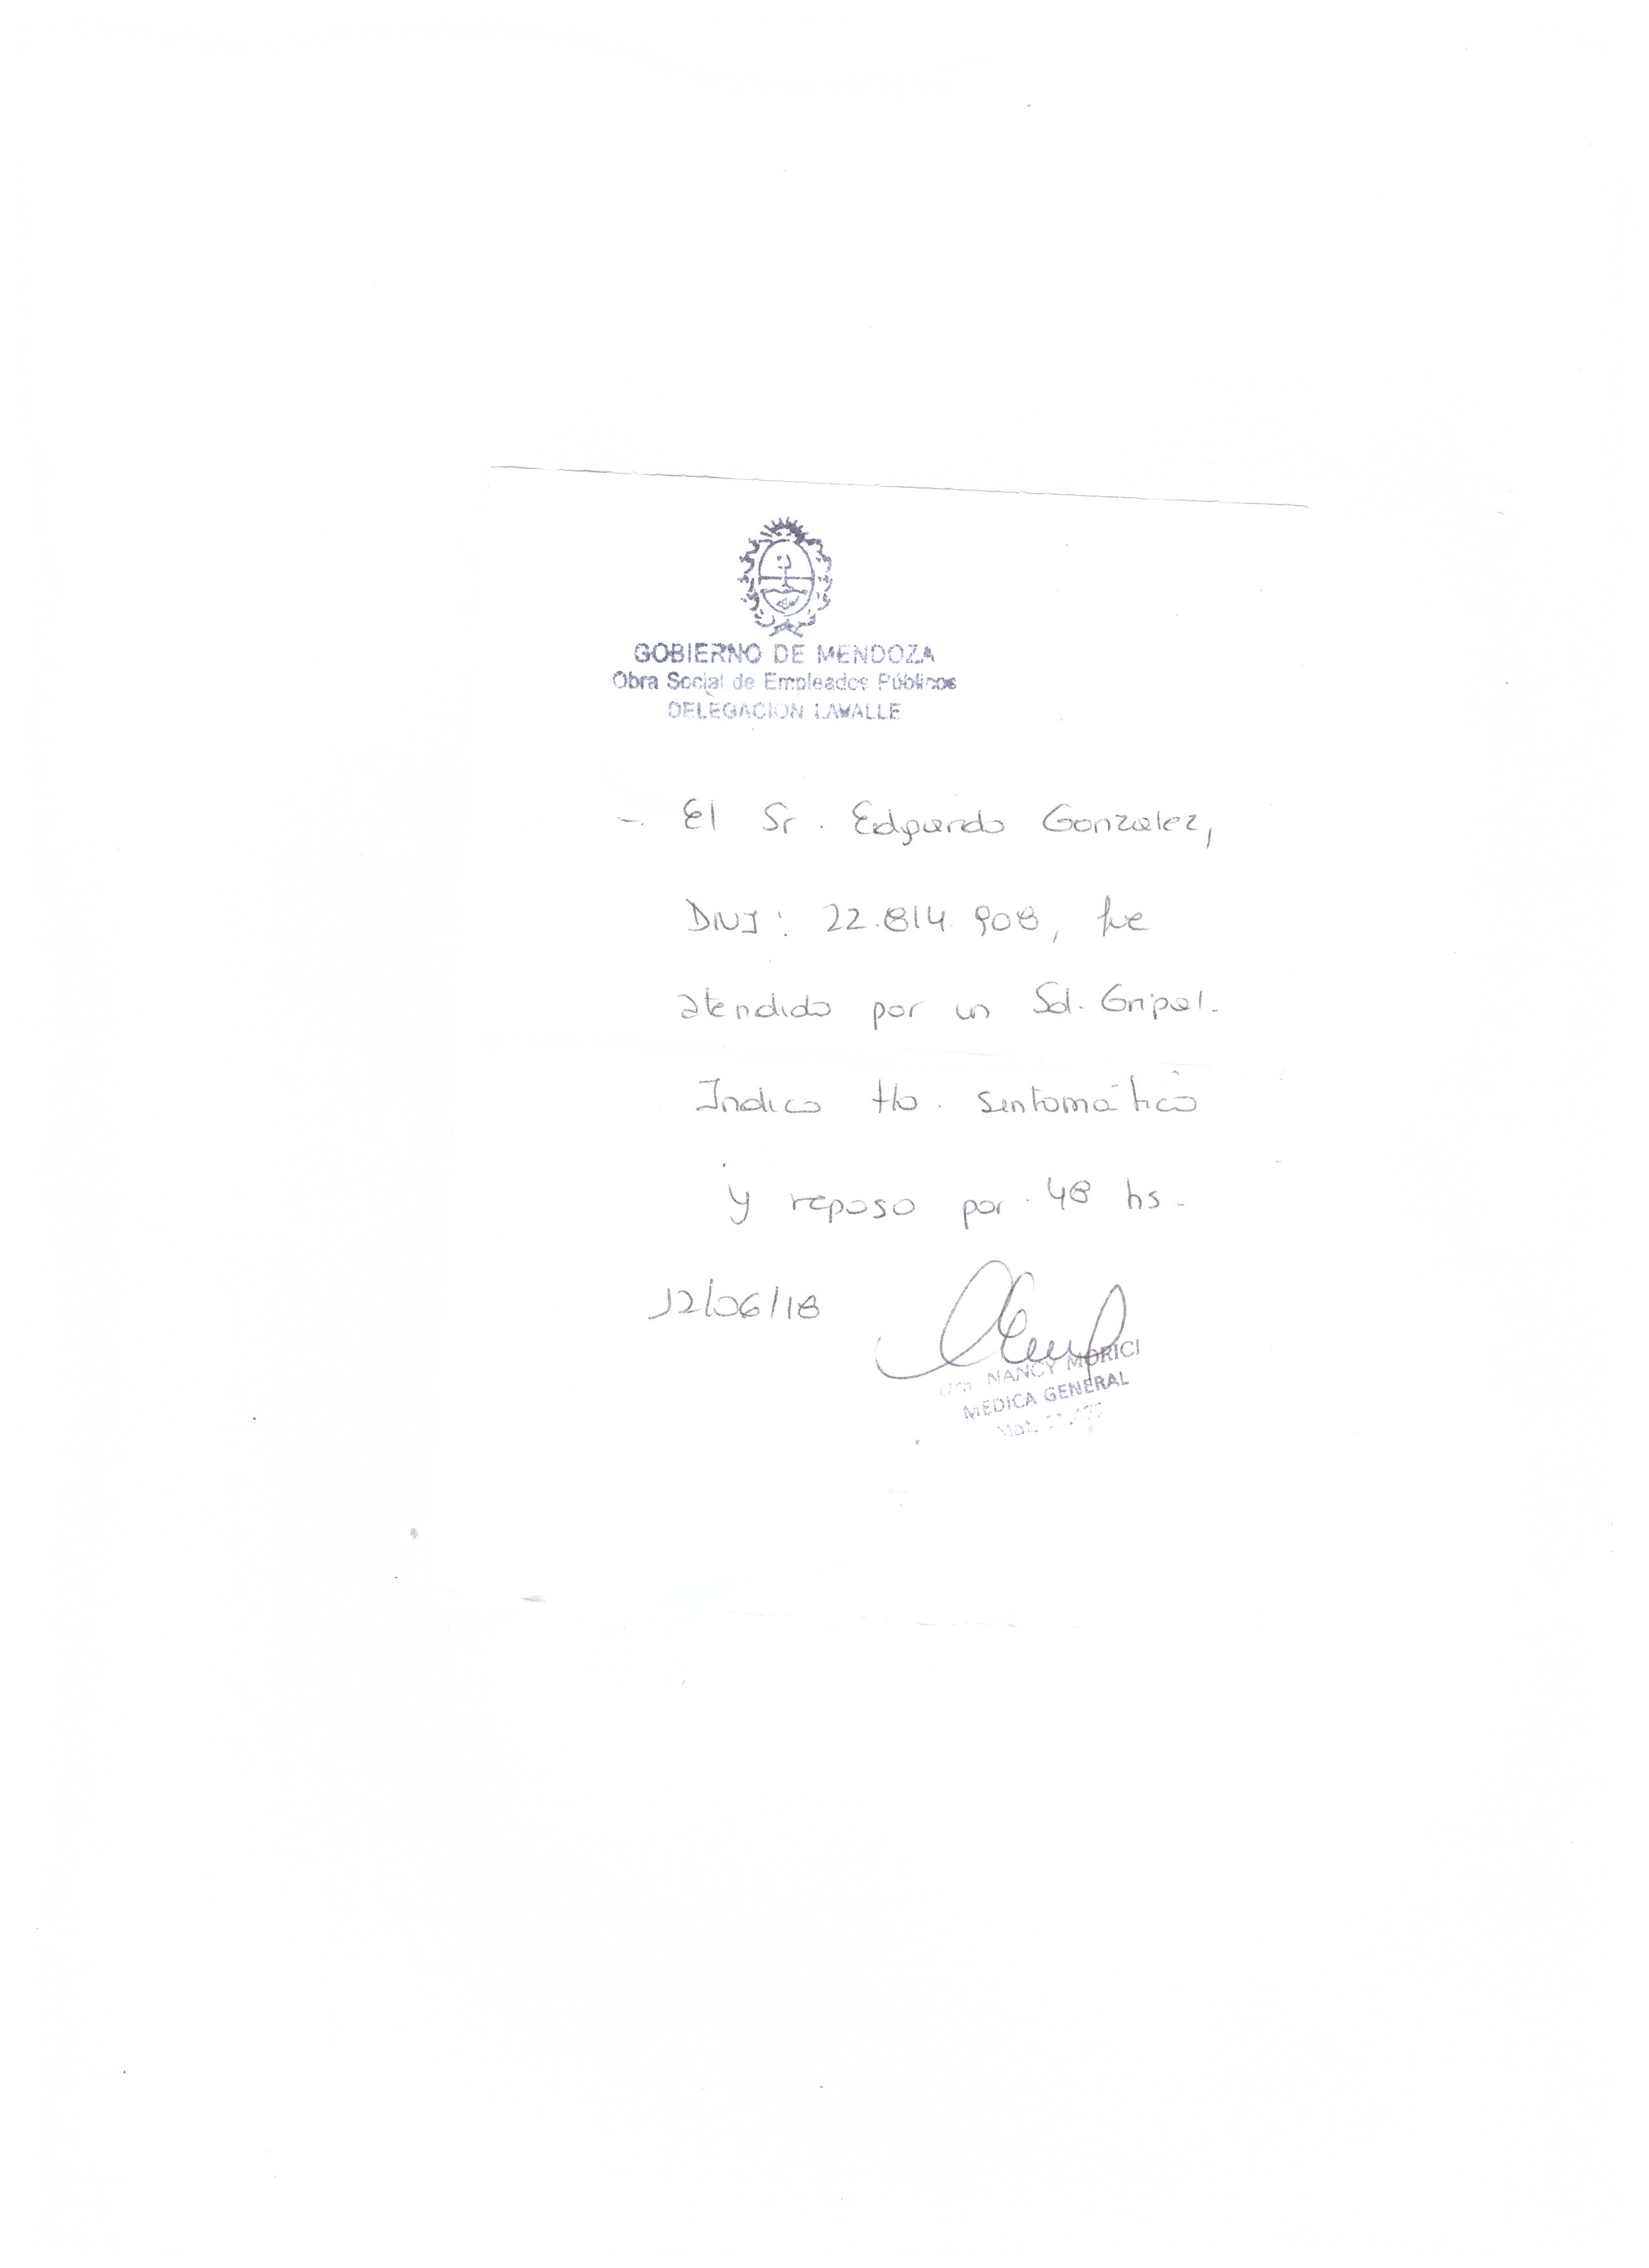 GOBIERNO DE MENDOZA
Obra Social de Empleados Públicos
DELEGACION LAVALLE
- El Sr. Edgardo Gonzalez,
DNI: 22.814.908, fue
atendido por un Sd. Gripal.
Indico tto. sintomático
y reposo por 48 hs.
12/06/18
Dra. NANCY MORICI
MEDICA GENERAL
Mat.